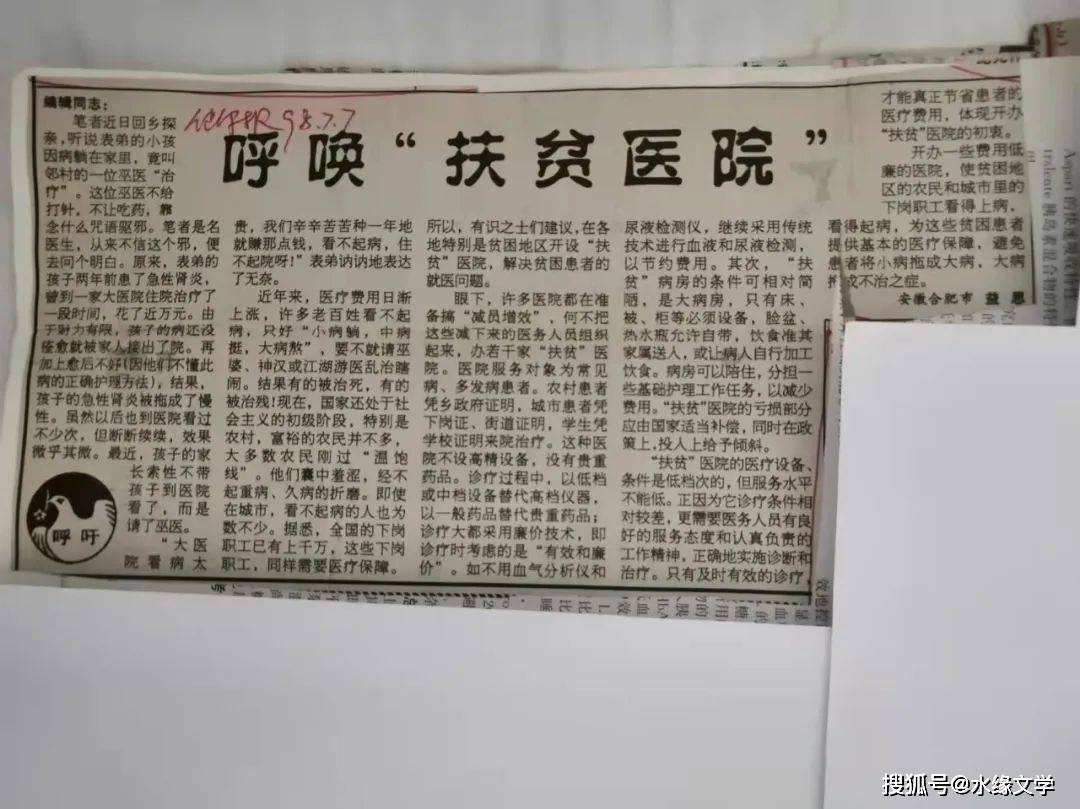 编辑同志：
笔者近日回乡探
亲，听说表弟的小孩
因病躺在家里，竟叫
邻村的一位巫医“治
疗”。这位巫医不给
打针，不让吃药，靠
念什么咒语驱邪。笔者是名
医生，从来不信这个邪，便
去问个明白。原来，表弟的
孩子两年前患了急性肾炎，
曾到一家大医院住院治疗了
一段时间，花了近万元。由
于财力有限，孩子的病还没
痊愈就被家人接出了院。再
加上愈后不好（因他们不懂此
病的正确护理方法），结果，
孩子的急性肾炎被拖成了慢
性。虽然以后也到医院看过
不少次，但断断续续，效果
微乎其微。最近，孩子的家
长索性不带
孩子到医院
看了，而是
请了巫医。
“大医
院看病太
呼吁
98.7.7
呼唤“扶贫医院”
贵，我们辛辛苦苦种一年地
就赚那点钱，看不起病，住
不起院呀！”表弟讷讷地表达
了无奈。
近年来，医疗费用日渐
上涨，许多老百姓看不起
病，只好“小病躺，中病
挺，大病熬”，要不就请巫
婆、神汉或江湖游医乱治瞎
闹。结果有的被治死，有的
被治残！现在，国家还处于社
会主义的初级阶段，特别是
农村，富裕的农民并不多，
大多数农民刚过“温饱
线”。他们囊中羞涩，经不
起重病、久病的折磨。即使
在城市，看不起病的人也为
数不少。据悉，全国的下岗
职工已有上千万，这些下岗
职工，同样需要医疗保障。
所以，有识之士们建议，在各
地特别是贫困地区开设“扶
贫”医院，解决贫困患者的
就医问题。
眼下，许多医院都在准
备搞“减员增效”，何不把
这些减下来的医务人员组织
起来，办若干家“扶贫”医
院。医院服务对象为常见
病、多发病患者。农村患者
凭乡政府证明，城市患者凭
下岗证、街道证明，学生凭
学校证明来院治疗。这种医
院不设高精设备，没有贵重
药品。诊疗过程中，以低档
或中档设备替代高档仪器，
以一般药品替代贵重药品；
诊疗大都采用廉价技术，即
诊疗时考虑的是“有效和廉
价”。如不用血气分析仪和
尿液检测仪，继续采用传统
技术进行血液和尿液检测，
以节约费用。其次，“扶
贫”病房的条件可相对简
陋，是大病房，只有床、
被、柜等必须设备，脸盆、
热水瓶允许自带，饮食准其
家属送人，或让病人自行加工
饮食。病房可以陪住，分担一
些基础护理工作任务，以减少
费用。“扶贫”医院的亏损部分
应由国家适当补偿，同时在政
策上，投入上给予倾斜。
“扶贫”医院的医疗设备、
条件是低档次的，但服务水平
不能低。正因为它诊疗条件相
对较差，更需要医务人员有良
好的服务态度和认真负责的
工作精神，正确地实施诊断和
治疗。只有及时有效的诊疗，
才能真正节省患者的
医疗费用，体现开办
“扶贫”医院的初衷。
开办一些费用低
廉的医院，使贫困地
区的农民和城市里的
下岗职工看得上病，
看得起病，为这些贫困患者
提供基本的医疗保障，避免
患者将小病拖成大病，大病
拖成不治之症。
安徽合肥市 益恩
搜狐号@水缘文学